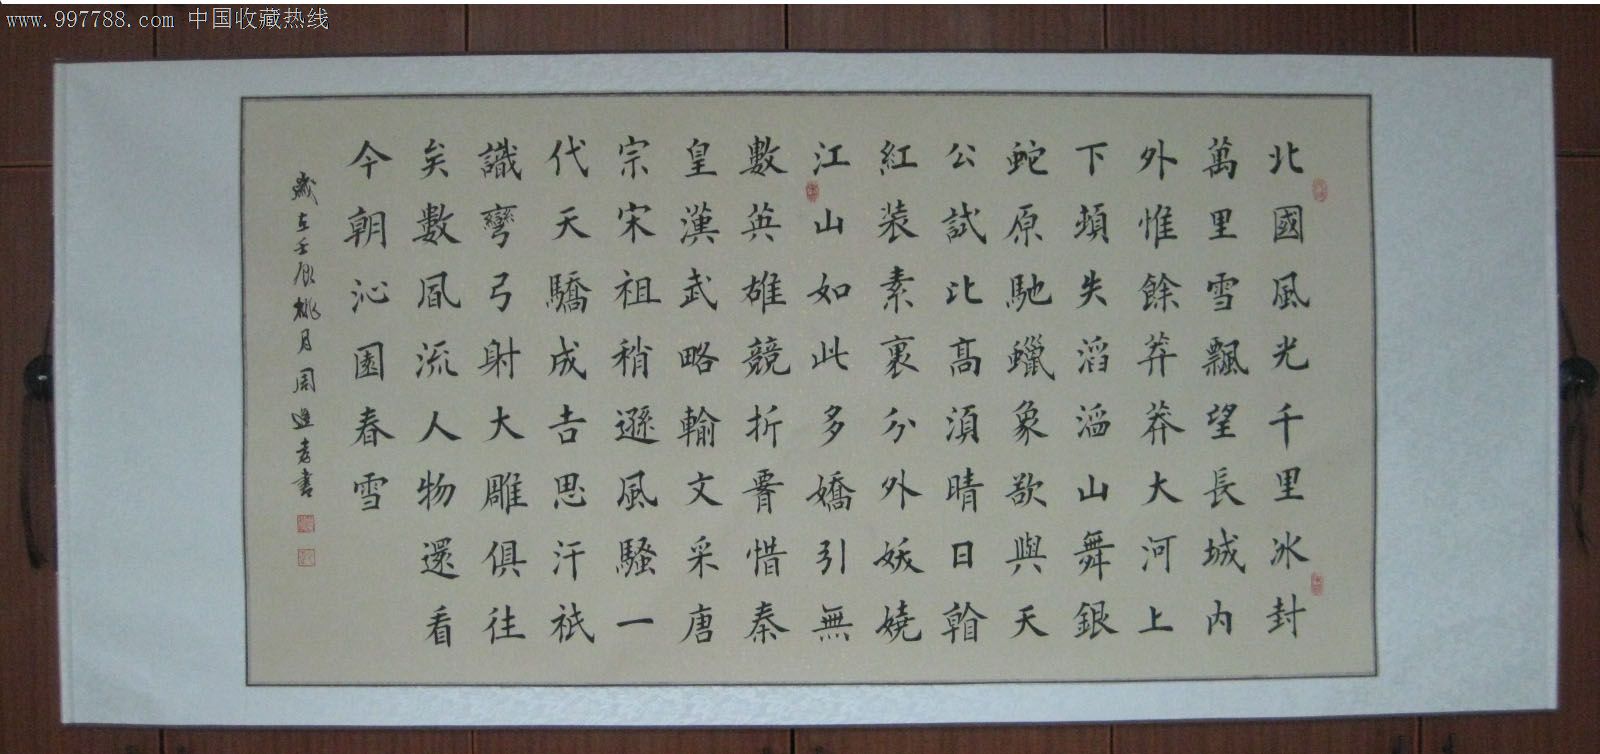 www.997788.com 中国收藏热线
北國風光千里冰封
萬里雪飄望長城內
外惟餘莽莽大河上
下頓失滔滔山舞銀
蛇原馳蠟象欲與天
公試比高須晴日
紅裝素裹分外妖嬈
江山如此多嬌引無
數英雄競折腰惜秦
皇漢武略輸文采唐
宗宋祖稍遜風騷一
代天驕成吉思汗祇
識彎弓射大雕俱往
矣數風流人物還看
今朝沁園春雪
歲在壬辰桃月周書